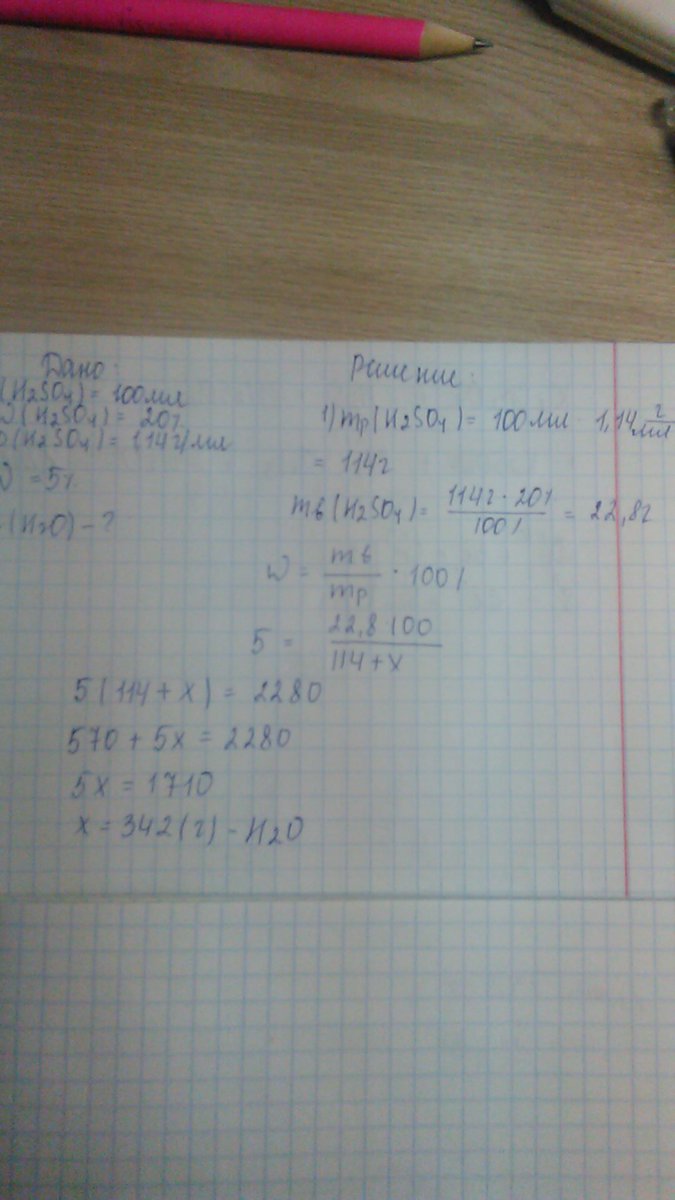 Дано:
(H2SO4) = 100мл
W(H2SO4) = 20%
(H2SO4) = 1,14г/мл
= 5%
(H2O) - ?
Решение:
1) mр(H2SO4) = 100мл · 1,14 г/мл
= 114г
mв(H2SO4) = 114г · 20% / 100% = 22,8г
W = mв / mр · 100%
5 = 22,8 · 100 / 114 + x
5(114 + x) = 2280
570 + 5x = 2280
5x = 1710
x = 342(г) - H2O